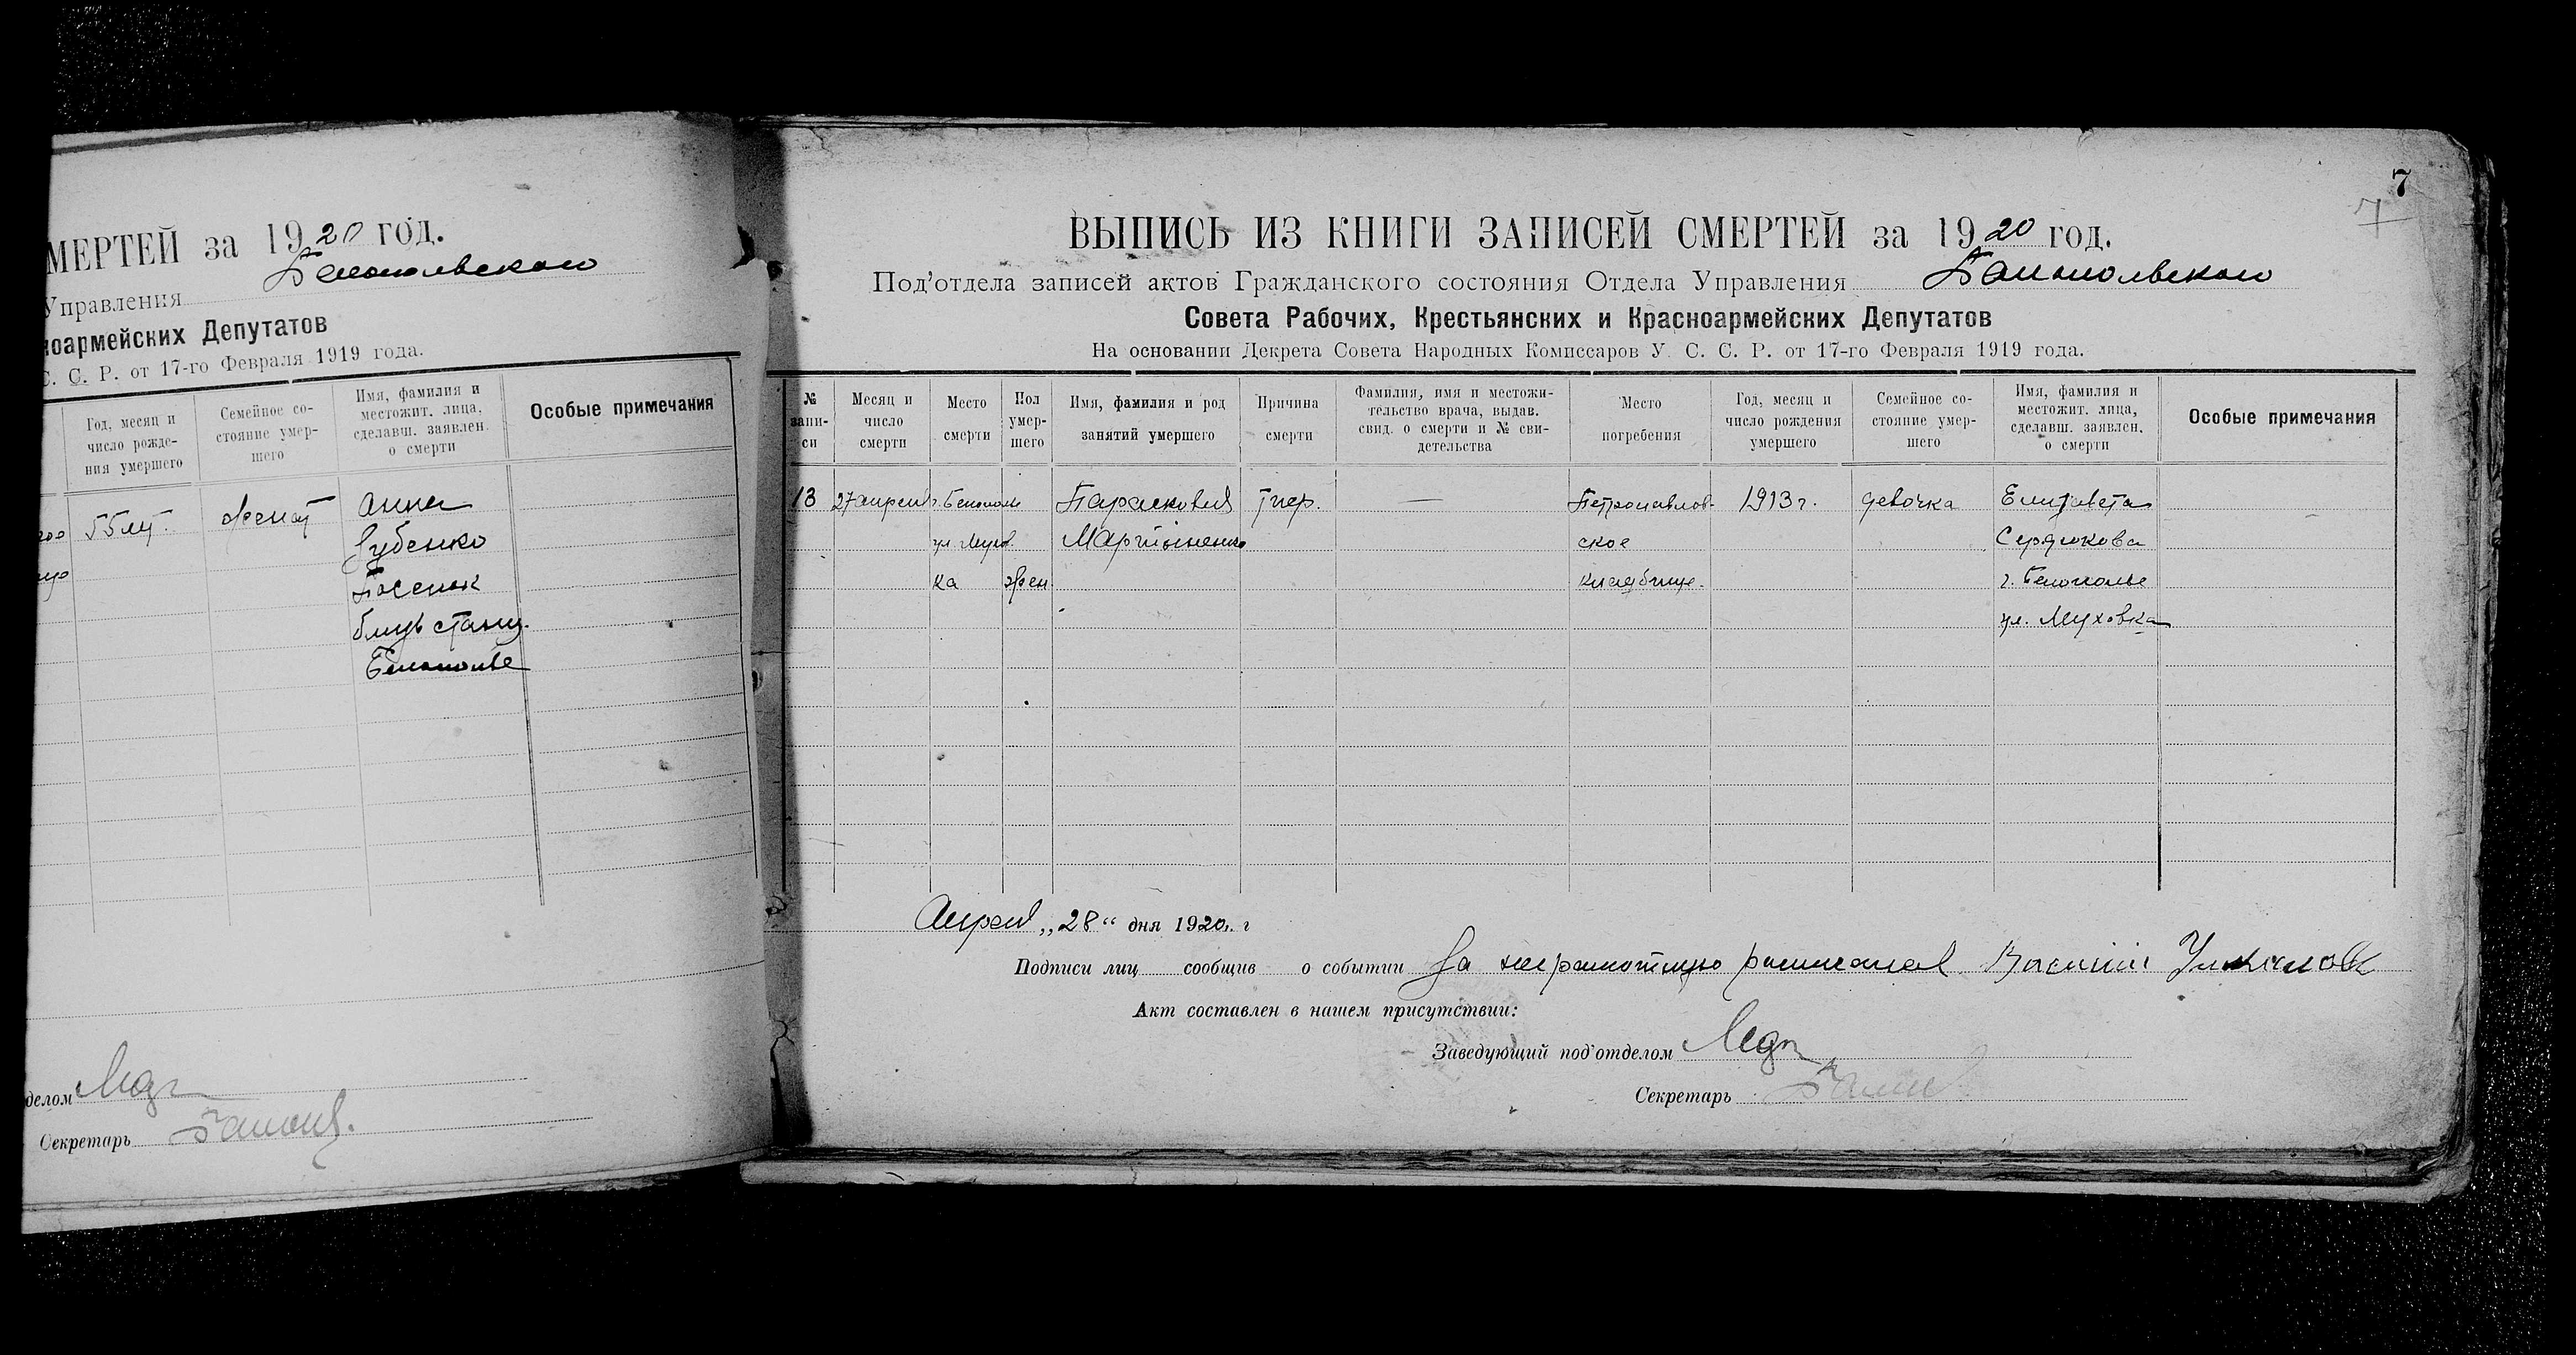 МЕРТЕЙ за 1920 год.
Управления Белопольского
ноармейских Депутатов
С. С. Р. от 17-го Февраля 1919 года.
Год, месяц и число рожде- ния умершего
Семейное со- стояние умер- шего
Имя, фамилия и местожит. лица, сделавш. заявлен. о смерти
Особые примечания
55 лет. женат Анна
Зубенко
Поселок
близь станц.
Белополье
делом
Секретарь
7
7
ВЫПИСЬ ИЗ КНИГИ ЗАПИСЕЙ СМЕРТЕЙ за 1920 год.
Под'отдела записей актов Гражданского состояния Отдела Управления Белопольского
Совета Рабочих, Крестьянских и Красноармейских Депутатов
На основании Декрета Совета Народных Комиссаров У. С. С. Р. от 17-го Февраля 1919 года.
№ запи- си
Месяц и число смерти
Место смерти
Пол умер- шего
Имя, фамилия и род занятий умершего
Причина смерти
Фамилия, имя и местожи- тельство врача, выдав. свид. о смерти и № сви- детельства
Место погребения
Год, месяц и число рождения умершего
Семейное со- стояние умер- шего
Имя, фамилия и местожит. лица, сделавш. заявлен. о смерти
Особые примечания
13 27 апреля г. Белополье Парасковия тиф. — Петропавлов- 1913 г. девочка Елизавета
ул. Мухов Мартыненко ское Сердюкова
ка жен. кладбище. г. Белополье
ул. Муховка
Апреля „28“ дня 1920 г
Подписи лиц сообщив о событии За неграмотную расписался Василий
Акт составлен в нашем присутствии:
Заведующий под'отделом
Секретарь